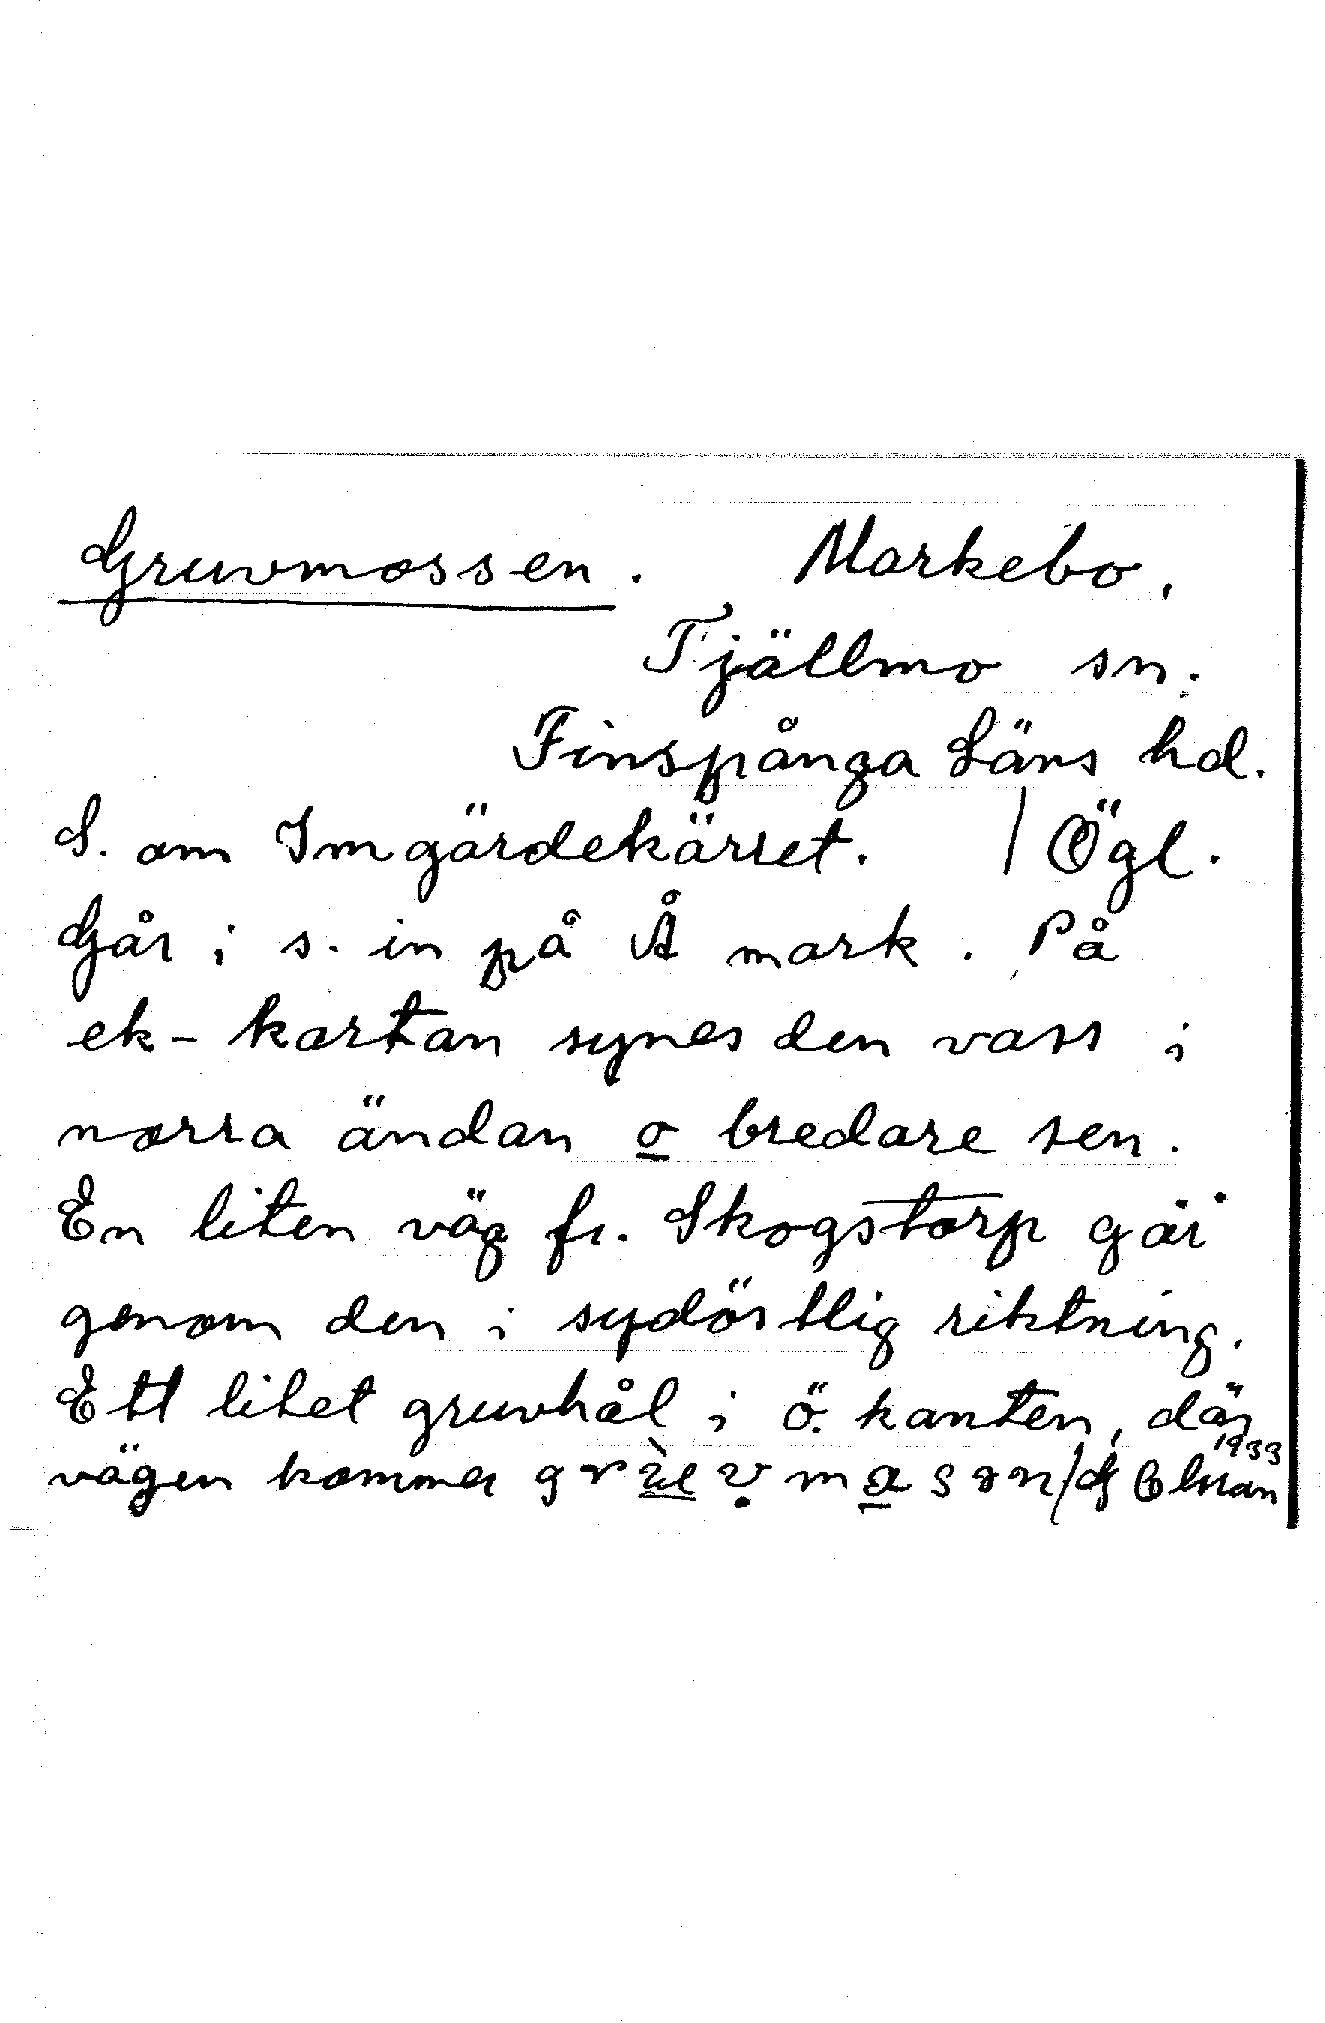 Gruvmossen. Markebo,
Tjällmo sn.
Finspånga Läns hd.
S. om Imgärdekärret. / Ögl.
Går i s. in på Å mark. På
ek-kartan synes den vass i
norra ändan o bredare sen.
En liten väg fr. Skogstorp går
genom den i sydöstlig riktning.
Ett litet gruvhål i ö. kanten, där
vägen kommer 1933